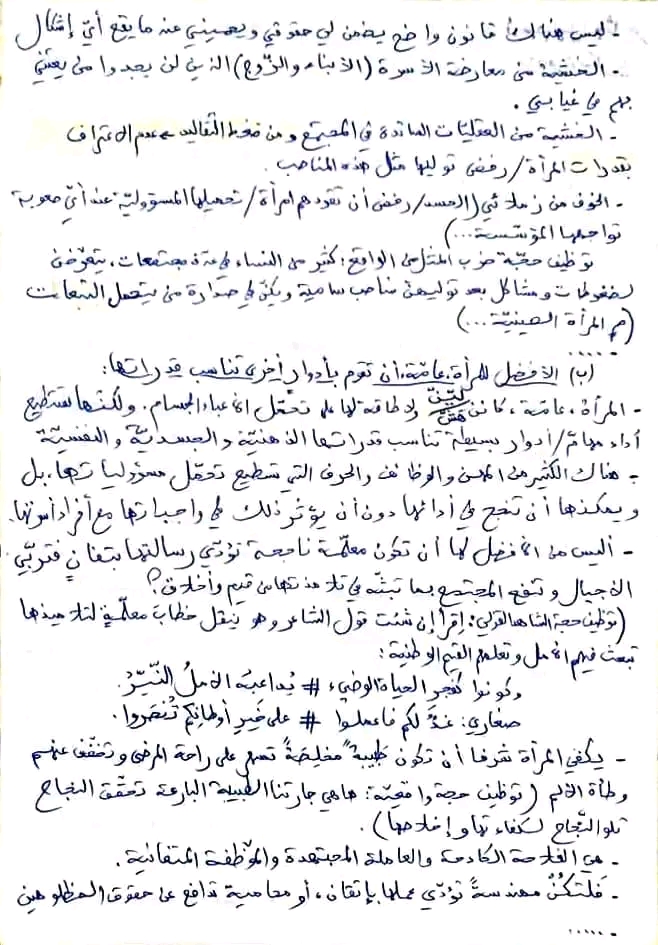 - ليس هناك قانون واضح يضمن لي حقوقي ويحميني عند ما يقع أيّ إشكال
- الخشية من معارضة الأسرة (الأبناء والزّوج) الذين لن يجدوا من يعتني
بهم في غيابي.
- الخشية من العقليّات السائدة في المجتمع ومن ضغط التّقاليد ← عدم الاعتراف
بقدرات المرأة / رفض توليها مثل هذه المناصب.
- الخوف من زملائي (الحسد / رفض أن تقودهم امرأة / تحميلها المسؤوليّة عند أيّ صعوبة
تواجهها المؤسّسة...)
توظيف حجّة ضرب المثل من الواقع: كثير من النساء في عدّة مجتمعات، يتعرّضن
لضغوطات ومشاكل بعد توليهنّ مناصب سامية ويكنّ في صدارة من يتحمل التبعات
(م المرأة الصينيّة...)
.....
(ب) الأفضل للمرأة، عامّة، أن تقوم بأدوار أخرى تناسب قدراتها:
- المرأة، عامّة، كائن ليّن هشّ ولا طاقة لها على تحمّل الأعباء الجسام. ولكنّها تستطيع
أداء مهامّ / أدوار بسيطة تناسب قدراتها الذهنيّة والجسديّة والنفسيّة
- هناك الكثير من المهن والوظائف والحرف التي تستطيع تحمّل مسؤولياتها، بل
ويمكنها أن تنجح في أدائها دون أن يؤثّر ذلك في واجباتها مع أفراد أسرتها.
- أليس من الأفضل لها أن تكون معلّمة ناجحة تؤدّي رسالتها بتفانٍ فتربّي
الأجيال وتنفع المجتمع بما تبثّه في تلامذتها من قيم وأخلاق؟
(توظيف حجة الشاهد القولي: اِقرأ إن شئت قول الشاعر وهو ينقل خطاب معلّمةٍ لتلاميذها
تبعث فيهم الأمل وتعلّمهم القيم الوطنيّة:
وكونوا كفجرِ الحياةِ الوضيء # يُداعبهُ الأملُ النّيّرُ.
صغاري: غدٌ لكم فاعملوا # على خيرِ أوطانِكم تُنصَروا.
- يكفي المرأة شرفا أن تكون طبيبةً مخلِصَةً تسهر على راحة المرضى وتخفّف عنهم
وطأة الألم (توظيف حجة واقعيّة: ها هي جارتنا الطبيبة البارعة تحقّق النجاح
تلو النّجاح لكفاءتها وإخلاصها).
- هي الفلاحة الكادحة والعاملة المجتهدة والموظّفة المتفانية.
- فَلْتكنْ مهندسةً تؤدّي عملها بإتقان، أو محامية تدافع عن حقوق المظلومين
- .....